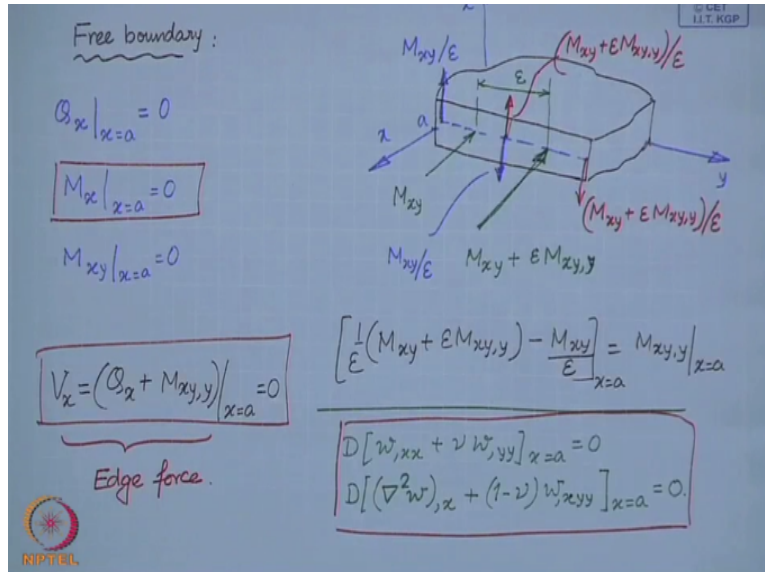 © CET
I.I.T. KGP
Free boundary :
Q_x|_{x=a} = 0
M_x|_{x=a} = 0
M_{xy}|_{x=a} = 0
V_x = (Q_x + M_{xy,y})|_{x=a} = 0
Edge force.
M_{xy}/ε
(M_{xy} + εM_{xy,y})/ε
ε
a
x
y
M_{xy}
(M_{xy} + εM_{xy,y})/ε
M_{xy}/ε
M_{xy} + εM_{xy,y}
[1/ε (M_{xy} + εM_{xy,y}) - M_{xy}/ε]_{x=a} = M_{xy,y}|_{x=a}
D[w_{,xx} + ν w_{,yy}]_{x=a} = 0
D[(∇²w)_{,x} + (1-ν) w_{,xyy}]_{x=a} = 0.
NPTEL